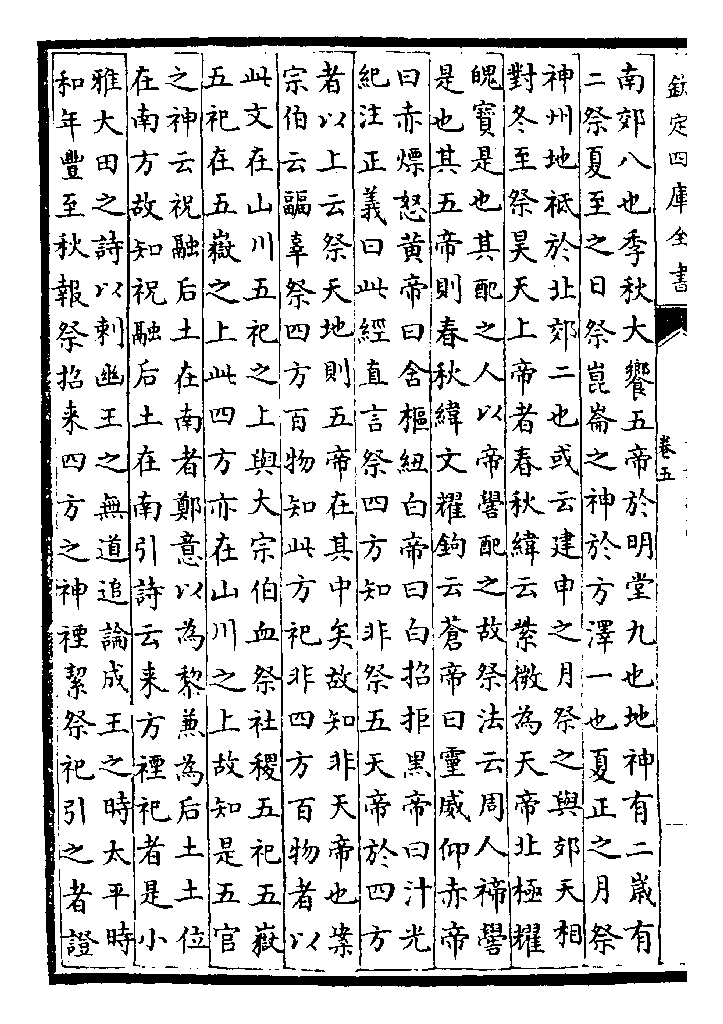 欽定四庫全書
卷五
南郊八也季秋大饗五帝於明堂九也地神有二嵗有
二祭夏至之日祭崑崙之神於方澤一也夏正之月祭
神州地祗於北郊二也或云建申之月祭之與郊天相
對冬至祭昊天上帝者春秋緯云紫微為天帝北極耀
魄寳是也其配之人以帝嚳配之故祭法云周人禘嚳
是也其五帝則春秋緯文耀鉤云蒼帝曰靈威仰赤帝
曰赤熛怒黄帝曰含樞紐白帝曰白招拒黑帝曰汁光
紀注正義曰此經直言祭四方知非祭五天帝於四方
者以上云祭天地則五帝在其中矣故知非天帝也案
宗伯云疈辜祭四方百物知此方祀非四方百物者以
此文在山川五祀之上與大宗伯血祭社稷五祀五嶽
五祀在五嶽之上此四方亦在山川之上故知是五官
之神云祝融后土在南者鄭意以為黎兼為后土土位
在南方故知祝融后土在南引詩云来方禋祀者是小
雅大田之詩以刺幽王之無道追論成王之時太平時
和年豐至秋報祭招来四方之神禋絜祭祀引之者證